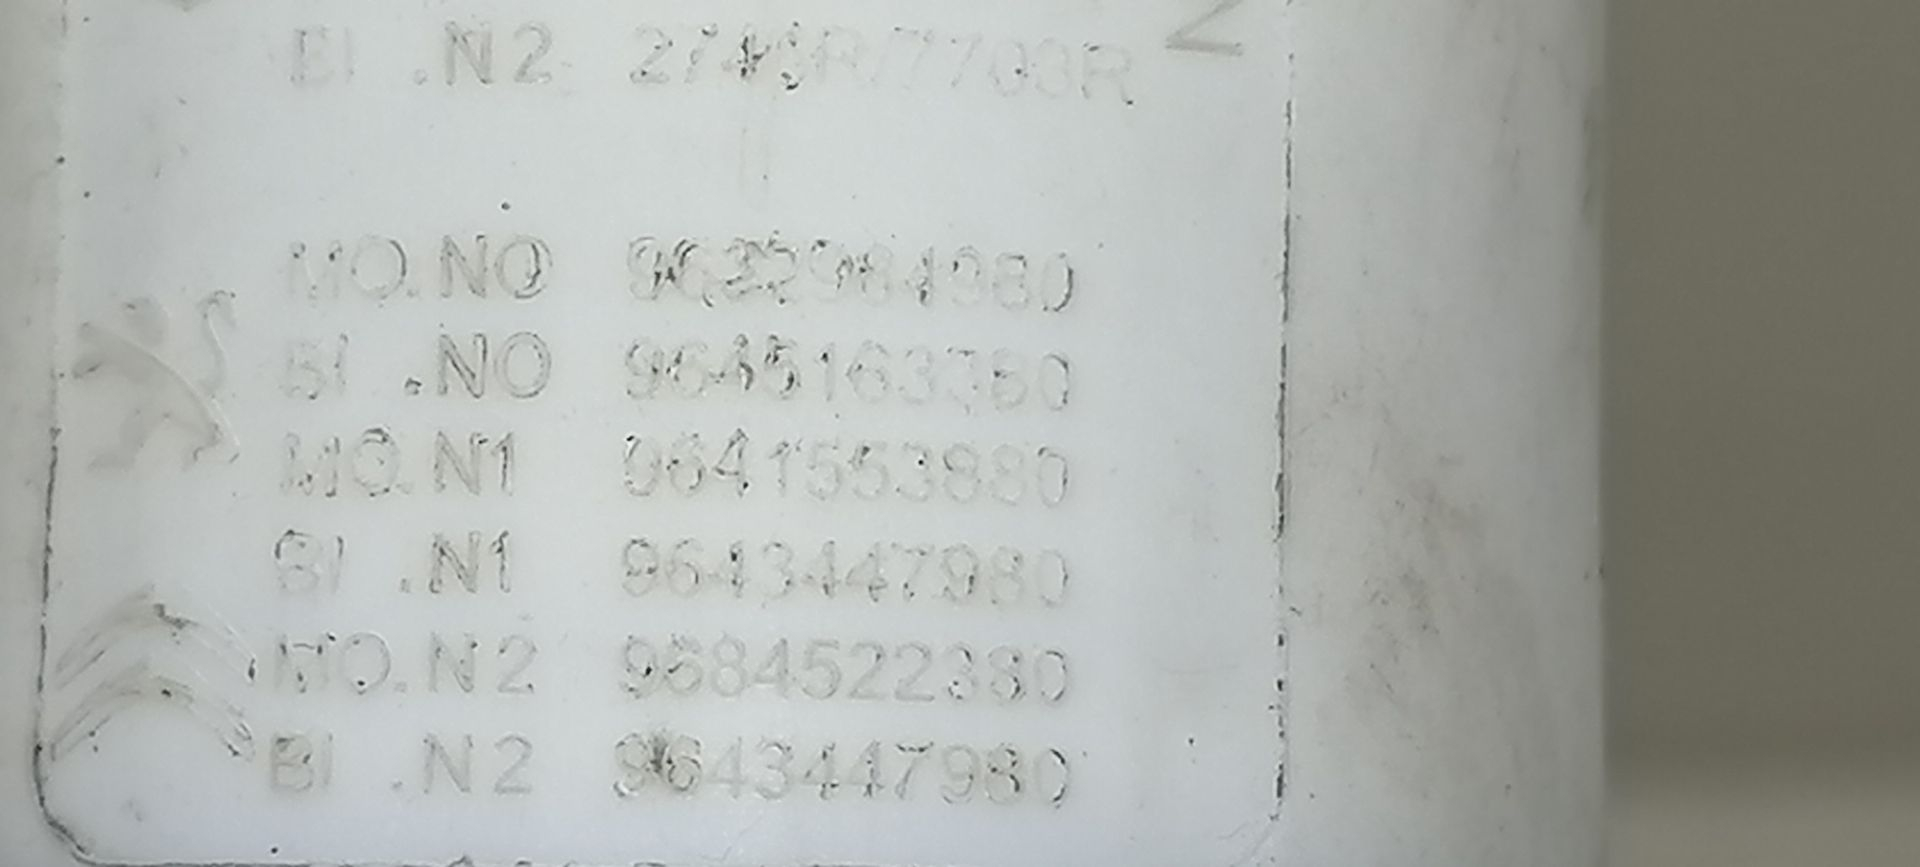 BI .N2 2746R/7703R
MO.NO 9632984380
BI .NO 9645163380
MO.N1 9641553880
BI .N1 9643447980
MO.N2 9684522380
BI .N2 9643447980